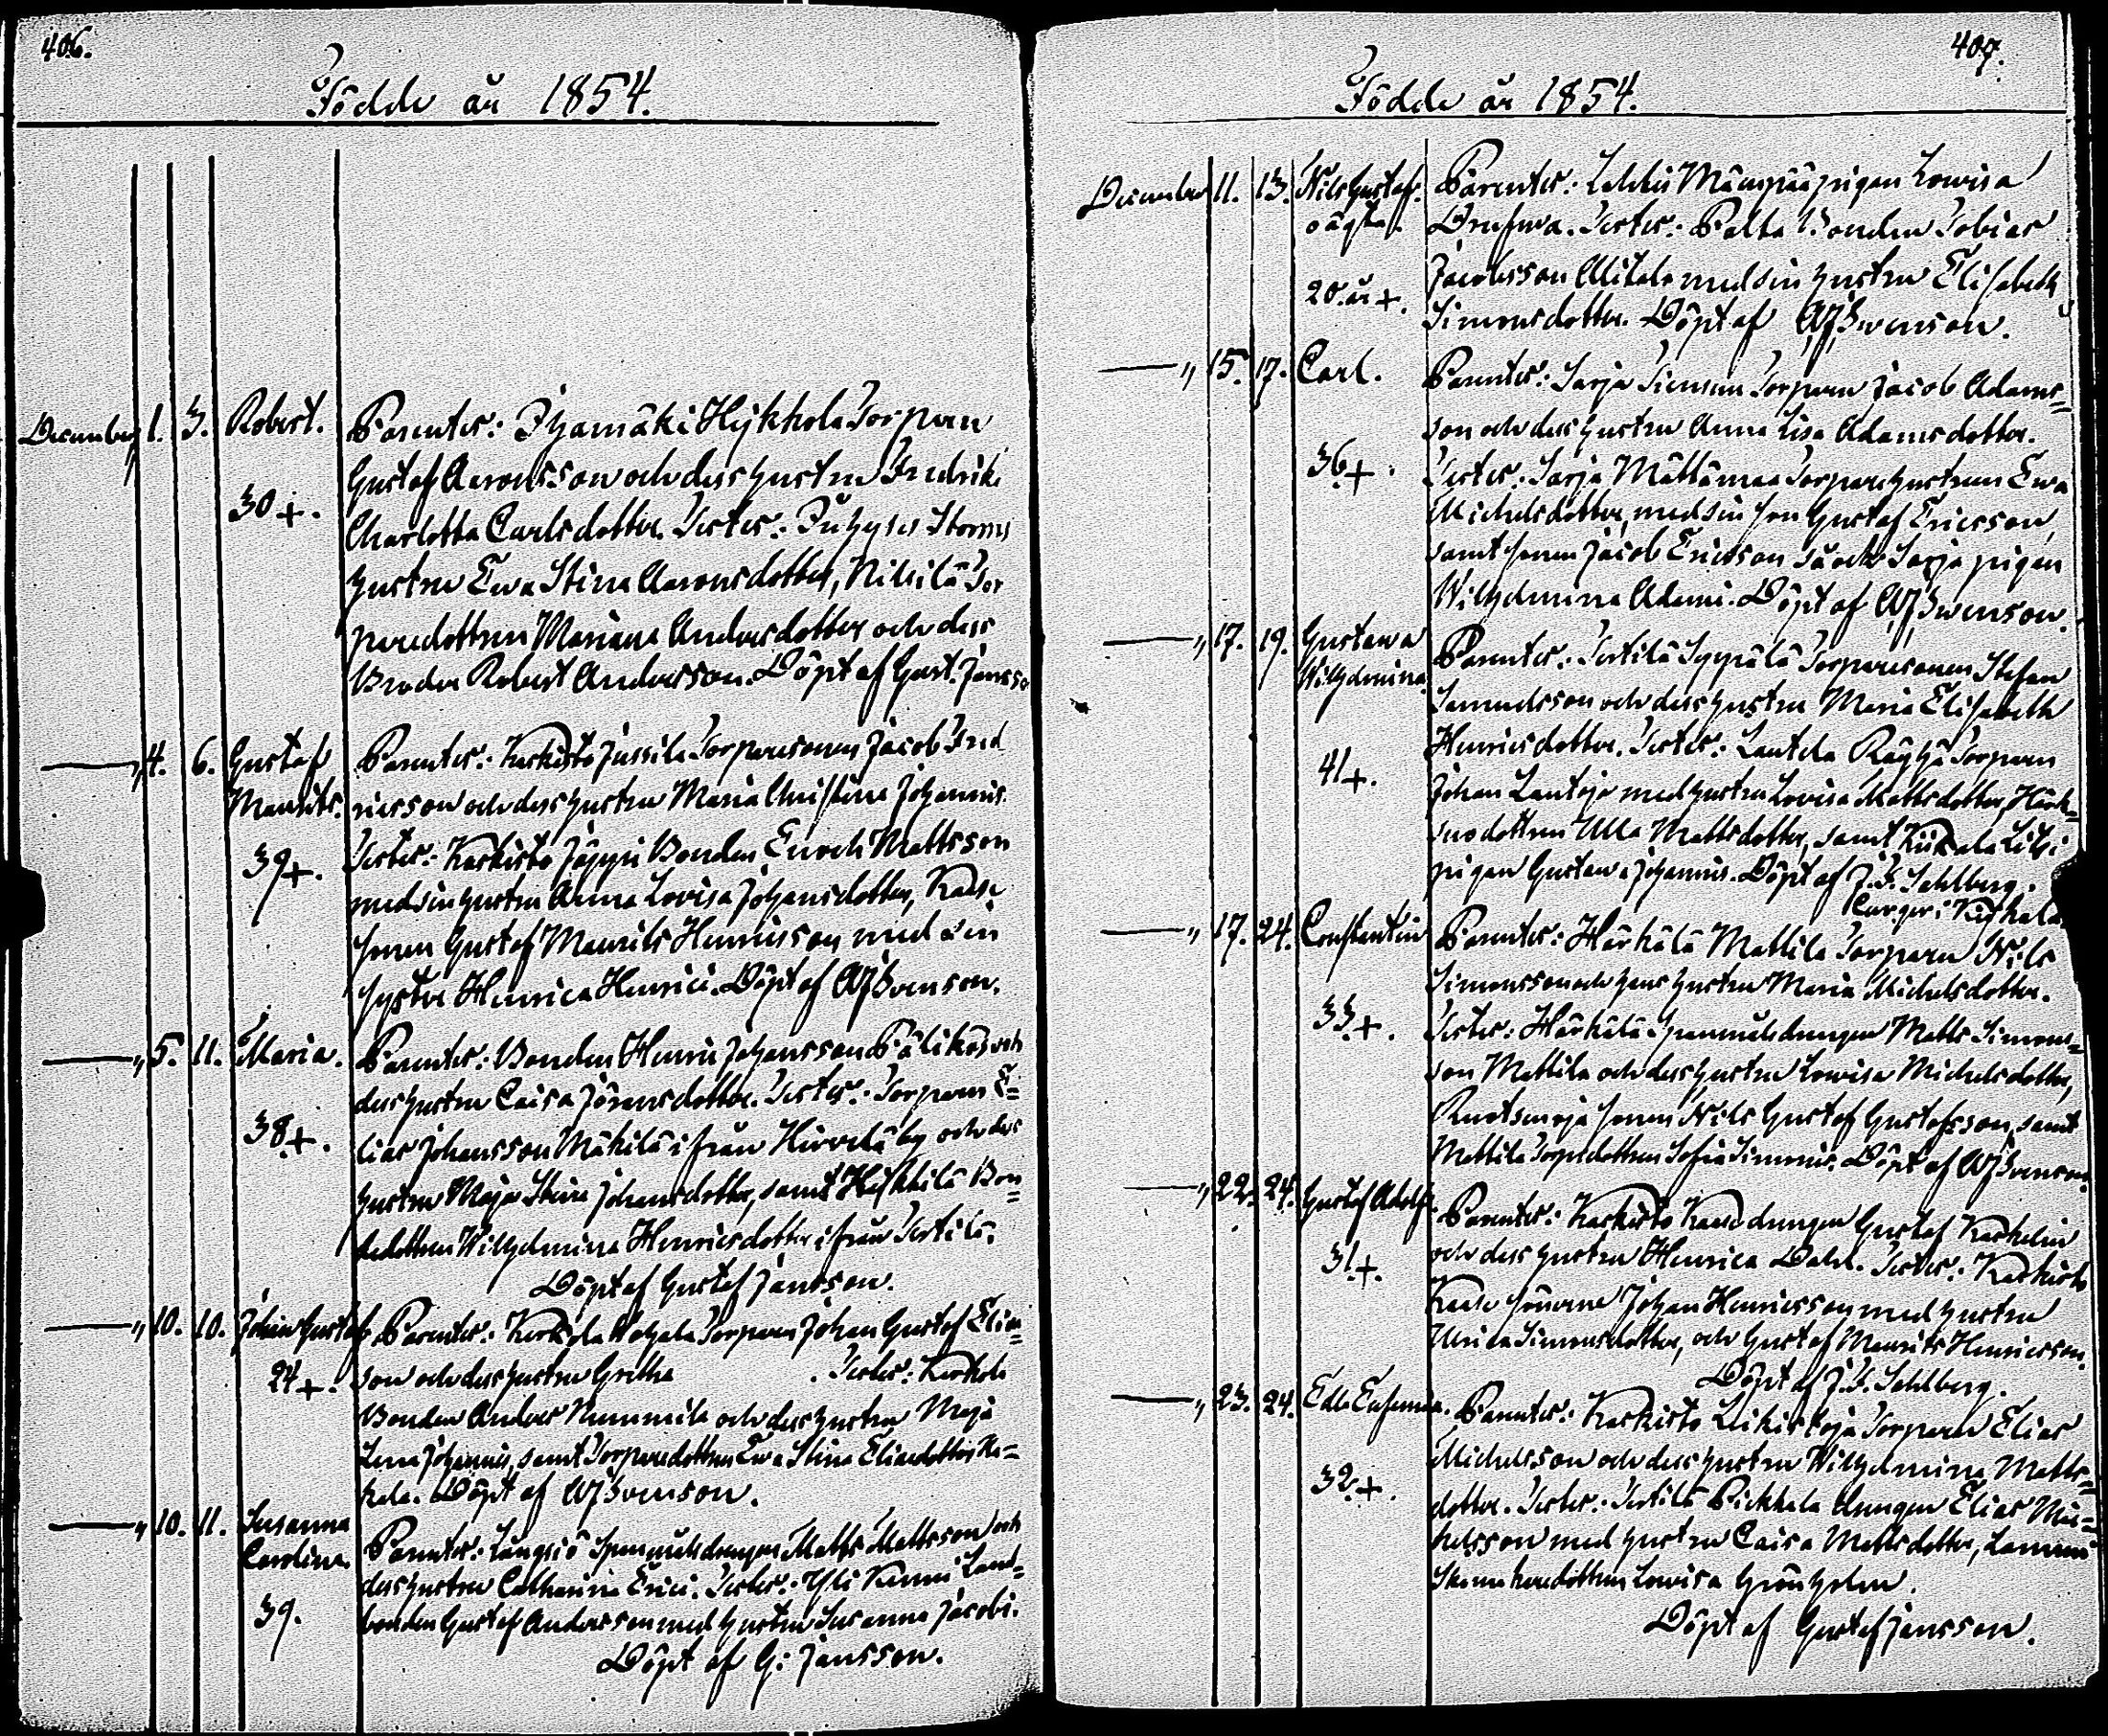 406.
Födde år 1854.
December 1. 3. Robert. Parenter: Pyamäki Heikkola Torparen
Gustaf Aaronsson och dess hustru Fredrika
30 +. Charlotta Carlsdotter. Tester: Storms
hustru Ewa Stina Aaronsdotter, Nikilä Tor
paredottren Mariana Andersdotter och dess
Broder Robert Andersson. Döpt af Gust. Jansson
—„ 4. 6. Gustaf Parenter: Karkisto Jussila Torparesonen Jacob Fred
Maurits. ricsson och dess hustru Maria Christina Johannis.
39 +. Tester: Karkisto Jäppi Bonden Enoch Mattsson
med sin hustru Anna Lovisa Johansdotter, Kaase
sonen Gustaf Maurits Henricsson med sin
syster Henrica Henrici. Döpt af Swenson.
—„ 5. 11. Maria. Parenter: Bonden Henric Johansson Pälikäs och
dess hustru Caisa Göransdotter. Tester: Torparen E=
38 +. lias Johansson Mäkilä ifrån Hirvelä by och dess
hustru Maja Stina Johansdotter, samt Heikkilä Bon=
dedottren Wilhelmina Henricsdotter ifrån Tertilä.
Döpt af Gustaf Jansson.
—„ 10. 10. Johan Gustaf Parenter: Kerkola Torparen Johan Gustaf Elias
24 +. son och dess hustru Gretha . Tester: Kerkola
Bonden Anders Nummila och dess hustru Maja
Lena Johannis, samt Torparedottren Ewa Stina Eliaedotter
Döpt af Swenson.
—„ 10. 11. Susanna Parenter: Långsjö Spannmålsdrängen Matts Mattsson och
Carolina. dess hustru Catharina Erici. Tester: Yli Land=
39. bonden Gustaf Andersson med hustru Susanna Jacobi.
Döpt af G: Jansson.
407.
Födde år 1854.
December 11. 13. Nils Gustaf. Parenter: Mäenpää pigan Lowisa
oägta. Tester: Palta Bonden Tobias
20. år +. Jacobsson Alitalo med sin hustru Elisabeth
Simonsdotter. Döpt af Swenson.
—„ 15. 17. Carl. Parenter: Sarja Torparen Jacob Adams=
son och dess hustru Anna Lisa Adamsdotter.
36 +. Tester: Sarja Mättämaa Torparehustrun Ewa
Michelsdotter, med sin son Gustaf Ericsson,
samt sonen Jacob Ericsson så ock Sarja pigan
Wilhelmina Adami. Döpt af Swenson.
—„ 17. 19. Gustawa Parenter: Tertilä Torparesonen Stefan
Wilhelmina. Samuelsson och dess hustru Maria Elisabeth
Henricsdotter. Tester: Lautela Räyhä Torparen
41 +. Johan Lautoja med hustru Lovisa Mattsdotter,
dottren Ulla Mattsdotter, samt Kiikala
pigan Gustava Johannis. Döpt af J. F. Sahlberg.
—„ 17. 24. Constantin Parenter: Härkälä Mattila Torparen Nils
Simonsson och hans hustru Maria Michelsdotter.
33 +. Tester: Härkälä Spannmålsdrängen Matts Simons=
son Mattila och dess hustru Lowisa Michelsdotter,
sonen Nils Gustaf Gustafsson, samt
Mattila Torpdottren Sofia Simonis. Döpt af Swenson.
—„ 22. 24. Gustaf Adolf. Parenter: Karkisto Kaase drängen Gustaf Karkelin
31 +. och dess hustru Henrica Dahl. Tester: Karkisto
Kaase sönerne Johan Henricsson med hustru
Ulrica Simonsdotter, och Gustaf Maurits Henricsson.
Döpt af J. F. Sahlberg.
—„ 23. 24. Edla Eufemia. Parenter: Karkisto Torparen Elias
Michelsson och dess hustru Wilhelmina Matts=
32 +. dotter. Tester: Tertilä Pickkala drängen Elias Mic=
helsson med hustru Caisa Mattsdotter,
dottren Lowisa Grönholm.
Döpt af Gustaf Jansson.